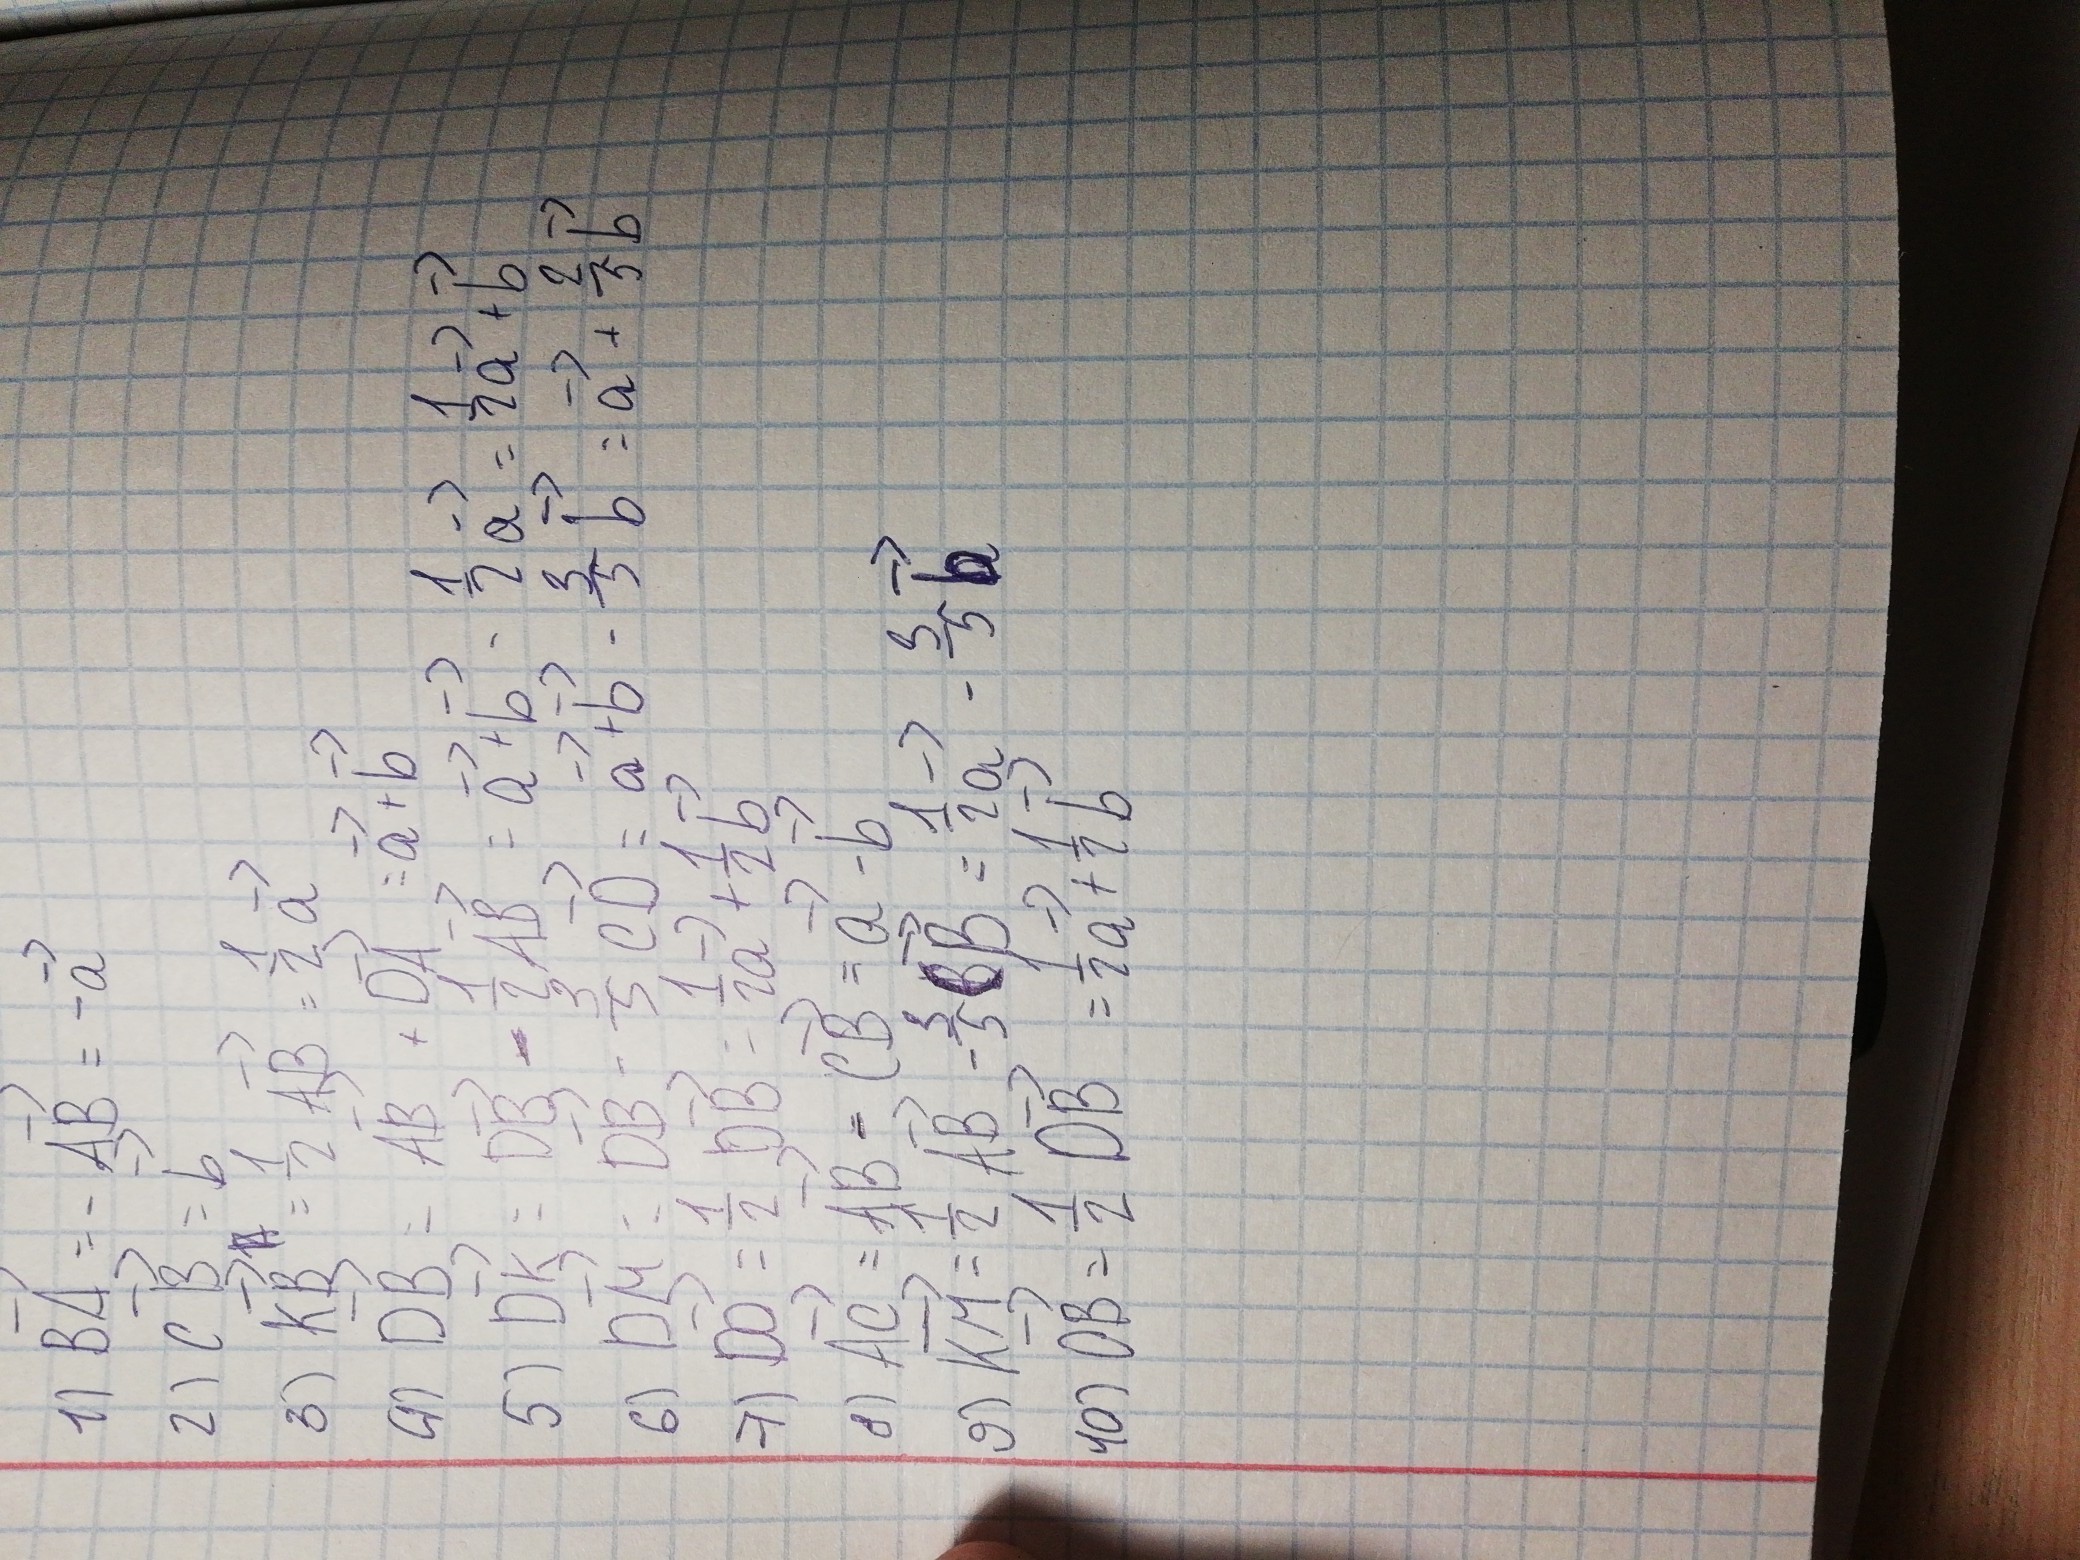 1) BA⃗ = - AB⃗ = -a⃗
2) CB⃗ = b⃗
3) KB⃗ = 1/2 AB⃗ = 1/2 a⃗
4) DB⃗ = AB⃗ + DA⃗ = a⃗ + b⃗
5) DK⃗ = DB⃗ - 1/2 AB⃗ = a⃗ + b⃗ - 1/2 a⃗ = 1/2 a⃗ + b⃗
6) DM⃗ = DB⃗ - 3/5 CB⃗ = a⃗ + b⃗ - 3/5 b⃗ = a⃗ + 2/5 b⃗
7) DO⃗ = 1/2 DB⃗ = 1/2 a⃗ + 1/2 b⃗
8) AC⃗ = AB⃗ - CB⃗ = a⃗ - b⃗
9) KM⃗ = 1/2 AB⃗ - 3/5 CB⃗ = 1/2 a⃗ - 3/5 b⃗
10) OB⃗ = 1/2 DB⃗ = 1/2 a⃗ + 1/2 b⃗